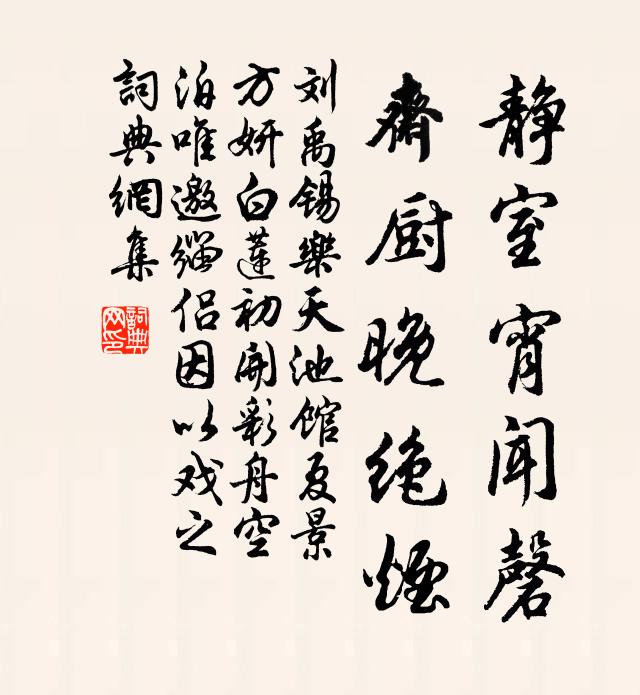 静室宵闻磬
齋厨晚绝煙
刘禹锡樂天池馆夏景
方妍白莲初開彩舟空
泊唯邀缁侣因以戏之
詞典網集
詞典网印